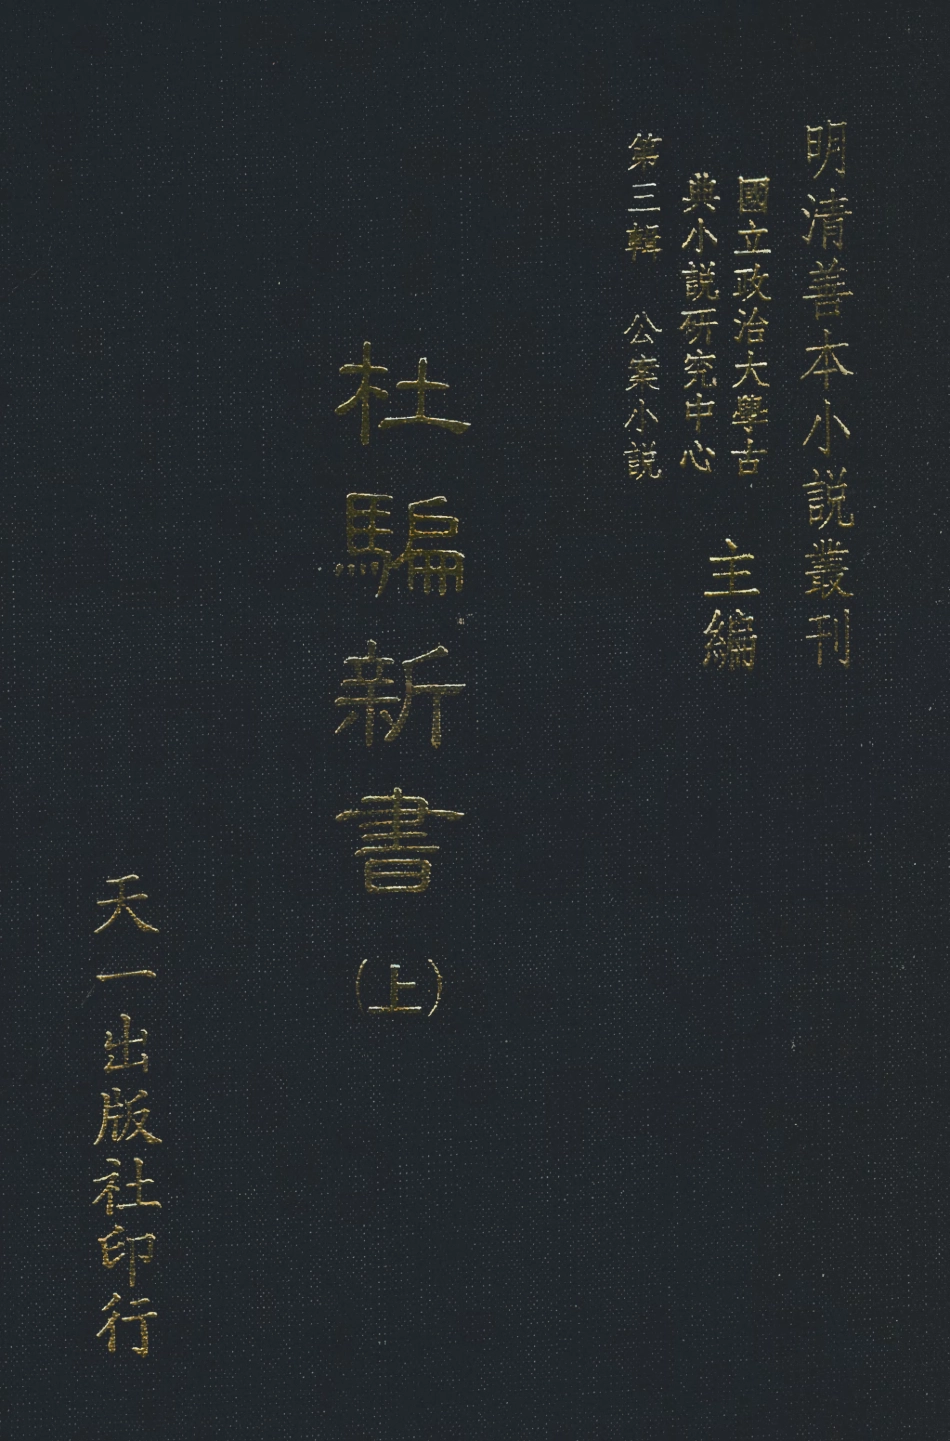 明清善本小説叢刊
國立政治大學古
典小説研究中心
主編
第三輯 公案小説
杜騙新書(上)
天一出版社印行